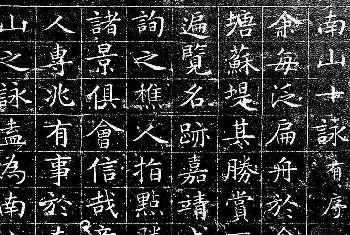 南山十詠有序
余每泛扁舟於
塘蘇堤其勝賞
遍覽名跡嘉靖
詢之樵父指點
諸景俱會信哉
人專兆有事於
山之詠盍為南